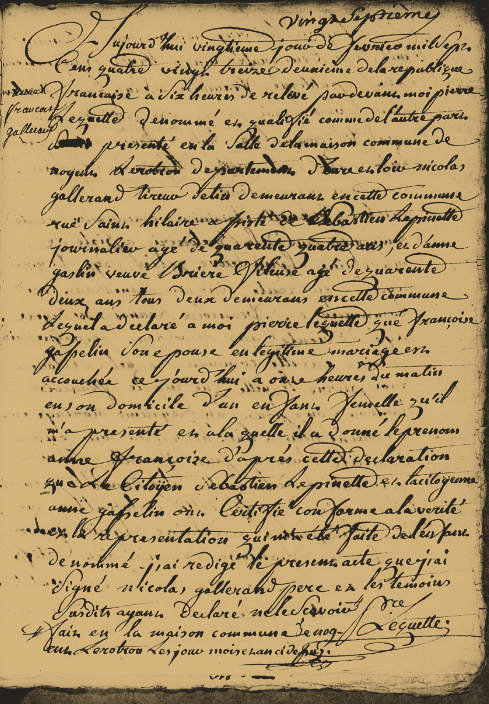 vingt Septième
Aujourd'hui vingtieme jour de fevrier mil Sept
Cens quatre vingt treize deuxieme de la republique
française a Six heures de relevé par devant moi pierre
Lequette denommé et qualifié comme de l'autre part
presenté en la Salle de la maison commune de
nogent Lerotrou departement d'Eure en loir nicolas
gallerand tireur d'etin demeurant en cette commune
rue Saint hilaire assisté de Sebastien Lepinette
journalier agé de quarente quatre ans, et d'anne
gaslin veuve Briere fileuse agé de quarente
deux ans tous deux demeurans en cette commune
Lequel a declaré a moi pierre lequette que françoise
gasselin Son epouse en legitime mariage est
accouchée ce jourd'hui a onze heures du matin
en son domicile d'un enfant femelle qu'il
m'a presenté et a la quelle il a donné le prenom
anne françoize d'aprés cette declaration
que Le Citoyen Sebastien Lepinette et la citoyenne
anne gasselin ont Certifié conforme a la verité
et la representation qui m'a été faite de l'enfant
denommé j'ai redigé le present acte que j'ai
Signé nicolas gallerand pere et les temoins
Susdits ayant declaré ne le Scavoir
fait en la maison commune de nog- Lequette.
ent Lerotrou Les jour mois et an ci dessus
anne
francoise
gallerand